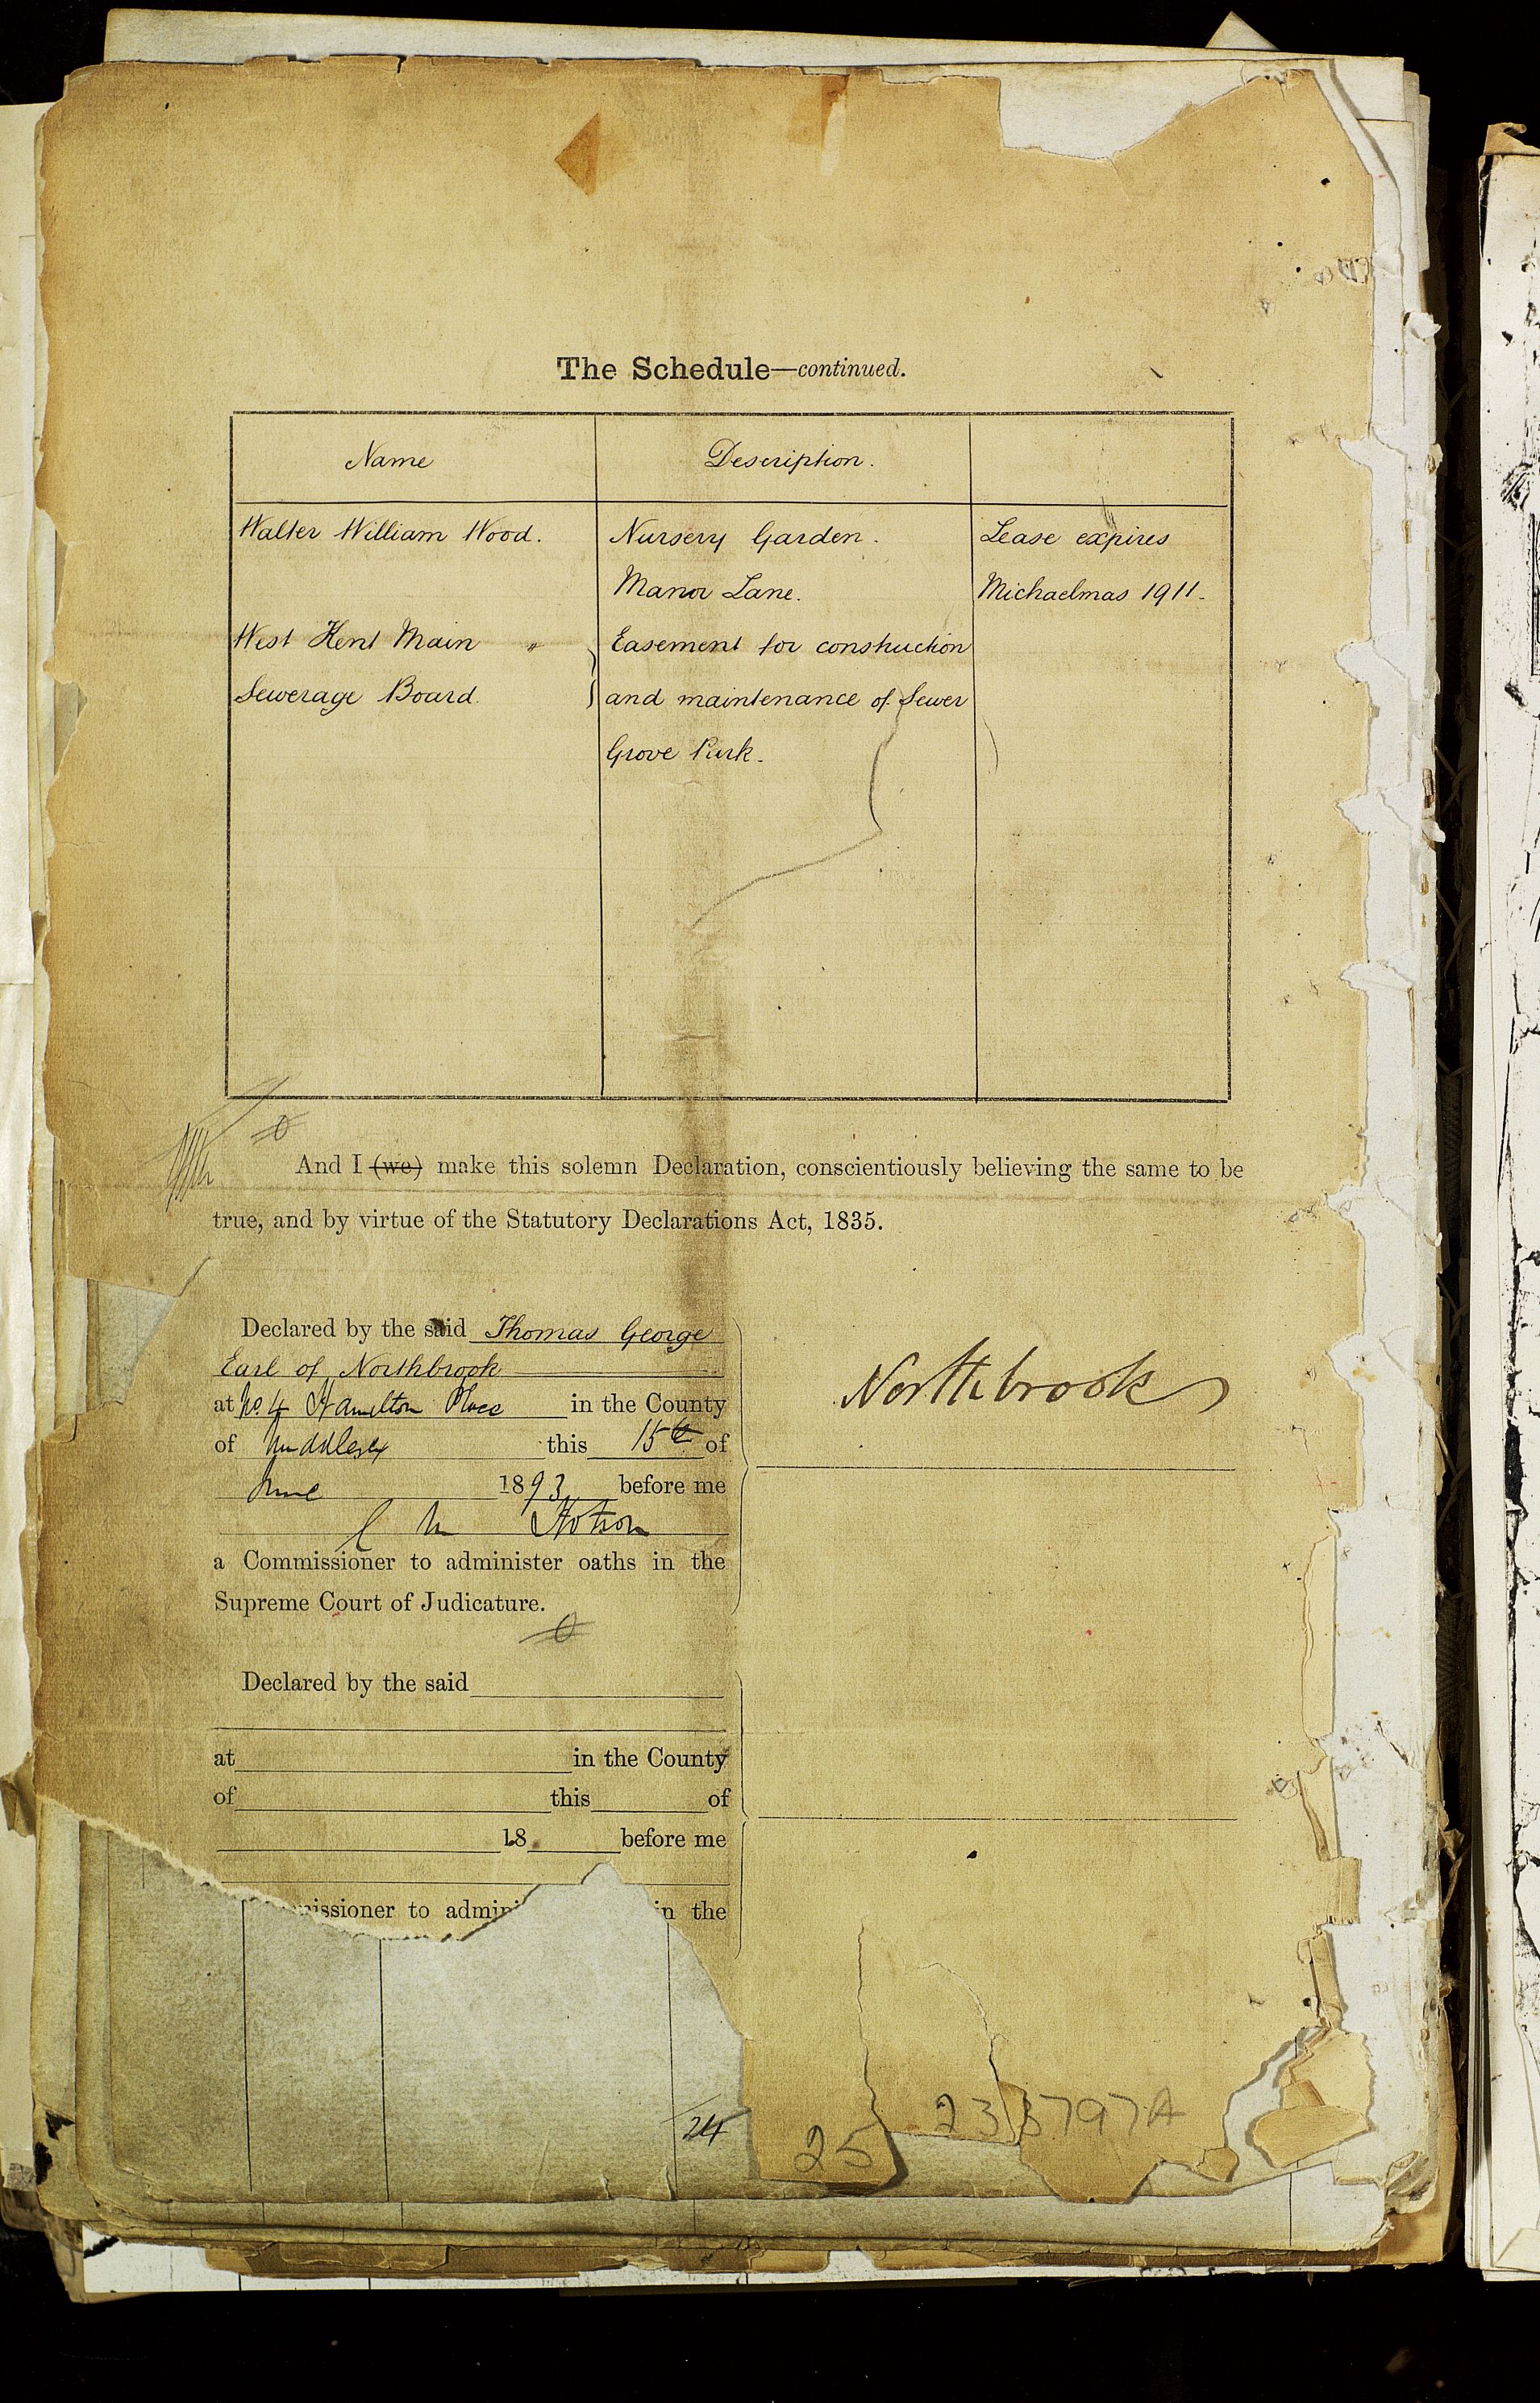 The Schedule—continued.
Name Description.
Walter William Wood. Nursery Garden. Lease expires
Manor Lane. Michaelmas 1911.
West Kent Main " Easement for construction
Sewerage Board. and maintenance of Sewer
Grove Park.
And I (we) make this solemn Declaration, conscientiously believing the same to be
true, and by virtue of the Statutory Declarations Act, 1835.
Declared by the said Thomas George
Earl of Northbrook
at No. 4 Hamilton Place in the County
of Middlesex this 15th of
June 1893 before me
Northbrook
C M Hotson
a Commissioner to administer oaths in the
Supreme Court of Judicature.
Declared by the said
at in the County
of this of
18 before me
missioner to admini in the
24
25
233797A